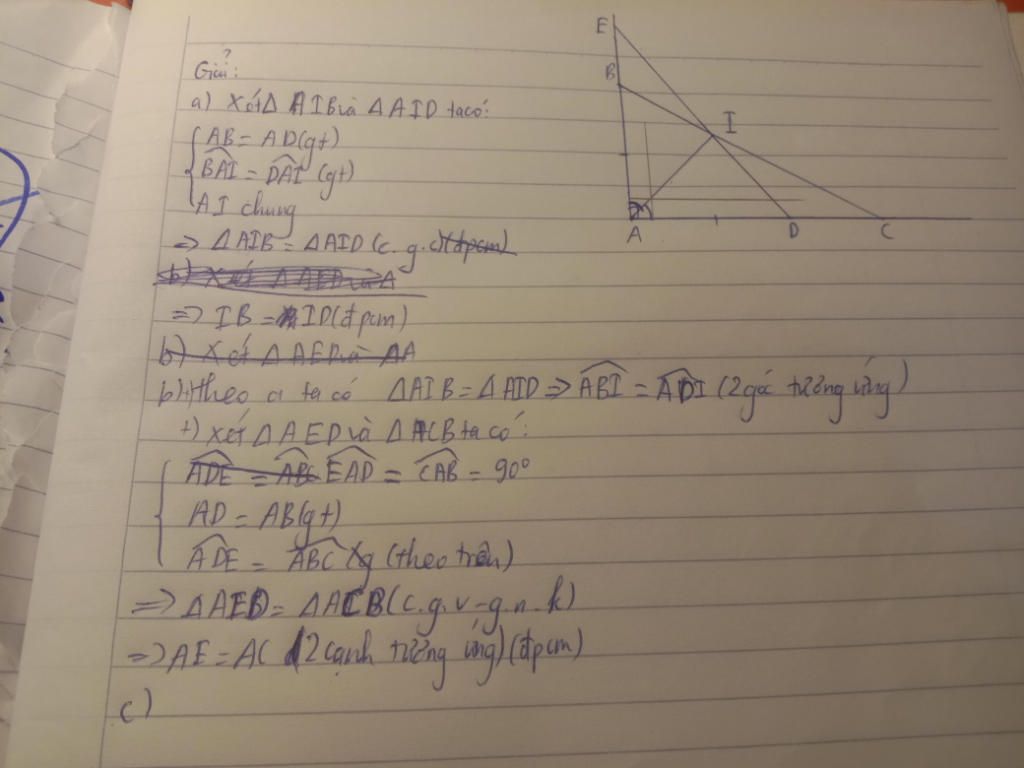 Giải:
a) Xét Δ AIB và Δ AID ta có:
AB = AD (gt)
BAI = DAI (gt)
AI chung
=> Δ AIB = Δ AID (c.g.c) (đpcm)
b) Xét Δ AED và Δ
=> IB = ID (đpcm)
b) Xét Δ AED và ΔA
b) +) theo a ta có ΔAIB = ΔAID => ABI = ADI (2 góc tương ứng)
+) Xét Δ AED và Δ ACB ta có:
ADE = ABC EAD = CAB = 90°
AD = AB (gt)
ADE = ABC (theo trên)
=> ΔAED = ΔACB (c.g.v - g.n.k)
=> AE = AC (2 cạnh tương ứng) (đpcm)
c)
E
B
I
A
D
C